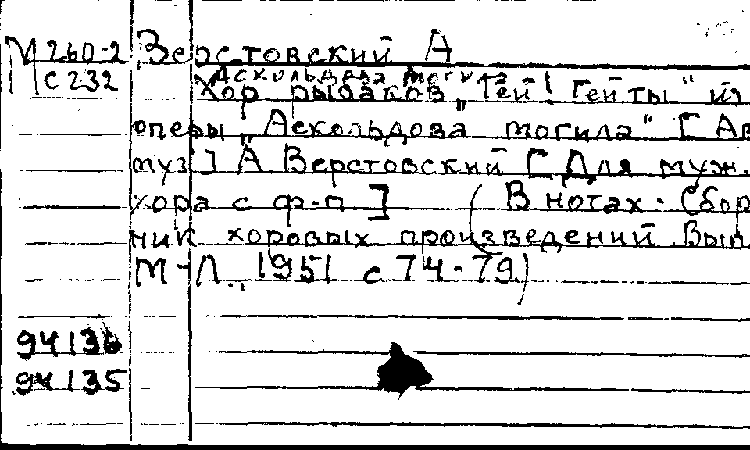 М 260-2 Верстовский А
С 232 Аскольдова могила
Хор рыбаков „Гей! Гей ты" из
оперы „Аскольдова могила" [Ав
муз] А Верстовский [Для муж.
хора с ф-п] (В нотах. Сбор
ник хоровых произведений Вып.
М-Л., 1951 с 74-79)
94136
94135